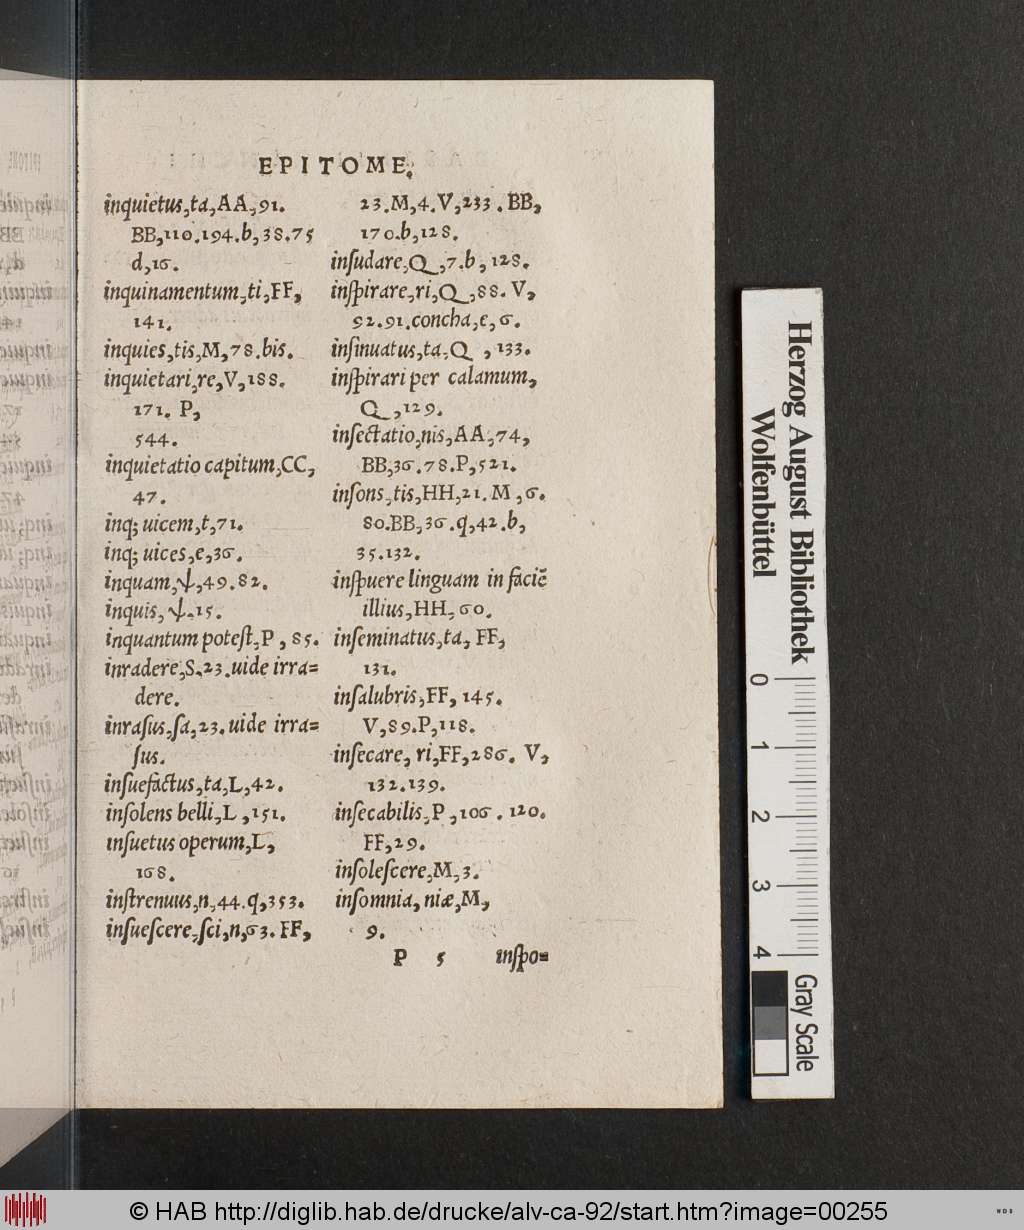 EPITOME.
inquietus,ta,AA,91.
BB,110.194.b,38.75
d,16.
inquinamentum,ti,FF,
141.
inquies,tis,M,78.bis.
inquietari,re,V,188.
171. P,
544.
inquietatio capitum,CC,
47.
inq; uicem,t,71.
inq; uices,e,36.
inquam,ψ,49.82.
inquis,ψ.15.
inquantum poteſt,P,85.
inradere,S.23.uide irra=
dere.
inraſus,ſa,23.uide irra=
ſus.
inſuefactus,ta,L,42.
inſolens belli,L,151.
inſuetus operum,L,
168.
inſtrenuus,n,44.q,353.
inſueſcere,ſci,n,63.FF,
23.M,4.V,233.BB,
170.b,128.
inſudare,Q,7.b,128.
inſpirare,ri,Q,88.V,
92.91.concha,e,6.
inſinuatus,ta,Q,133.
inſpirari per calamum,
Q,129.
inſectatio,nis,AA,74,
BB,36.78.P,521.
inſons,tis,HH,21.M,6.
80.BB,36.q,42.b,
35.132.
inſpuere linguam in faciē
illius,HH,60.
inſeminatus,ta,FF,
131.
inſalubris,FF,145.
V,89.P,118.
inſecare,ri,FF,286. V,
132.139.
inſecabilis,P,106.120.
FF,29.
inſoleſcere,M,3.
inſomnia,niæ,M,
9.
P 5 inſpo=
Herzog August Bibliothek
Wolfenbüttel
0 1 2 3 4
Gray Scale
© HAB http://diglib.hab.de/drucke/alv-ca-92/start.htm?image=00255